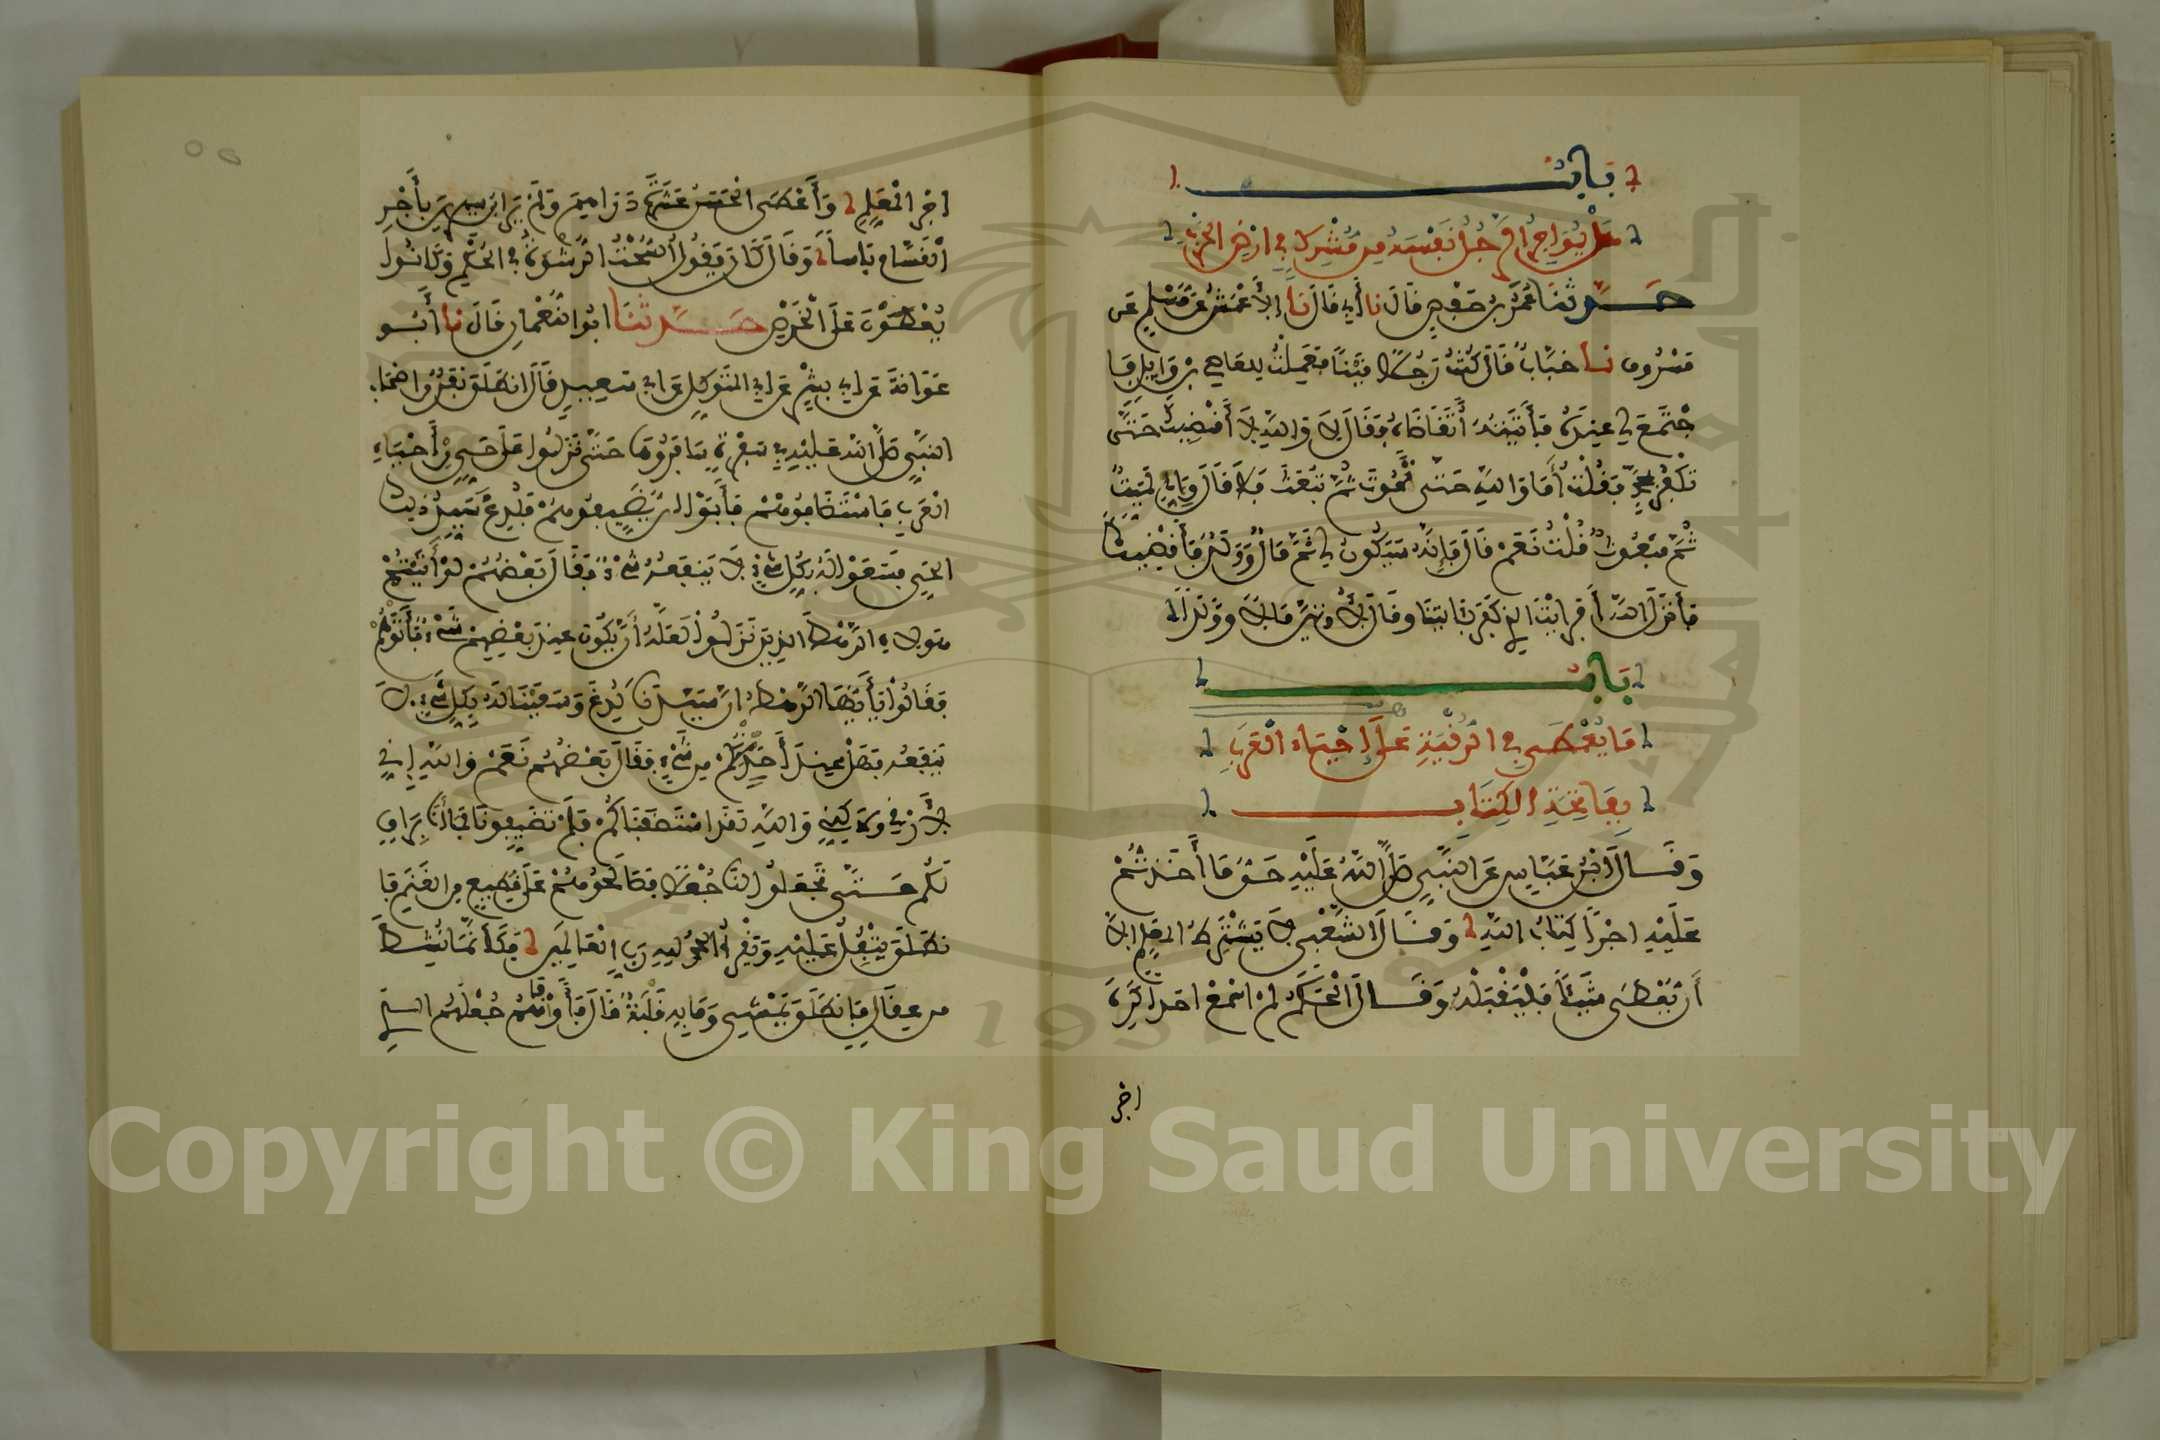 بَابُ
هَلْ يُوَاجِرُ الرَّجُلُ نَفْسَهُ مِنْ مُشْرِكٍ فِي ارْضِ الحَرْبِ
حَدَّثَنَا عُمَرُ بْنُ حَفْصٍ قَالَ نا أَبِي قَالَ نَا الأَعْمَشُ عَن مُسْلِمٍ عَن
مَسْرُوقٍ نا خَبَّابٌ قَالَ كُنْتُ رَجُلًا قَيْنًا فَعَمِلْتُ لِلعَاصِي بْنِ وَايِلٍ فَا
جْتَمَعَ لِي عِنْدَهُ فَأَتَيْتُهُ أَتَقَاضَاهُ فَقَالَ لَا وَاللَّهِ لَا أَقْضِيكَ حَتَّى
تَكْفُرَ بِمُحَمَّدٍ فَقُلْتُ أَمَا وَاللهِ حَتَّى تَمُوتَ ثُمَّ تُبْعَثَ فَلَا قَالَ وَإِنِّي لَمَيِّتٌ
ثُمَّ مَبْعُوثٌ قُلْتُ نَعَمْ قَالَ فَإِنَّهُ سَيَكُونُ لِي ثَمَّ مَالٌ وَوَلَدٌ فَأَقْضِيكَ
فَأَنْزَلَ اللَّهُ أَفَرَايْتَ الذِي كَفَرَ بِآيَاتِنَا وَقَالَ لَأُوتَيَنَّ مَالًا وَوَلَدًا
بَابُ
مَا يُعْطَى فِي الرُّقْيَةِ عَلَى احْيَاءِ الْعَرَبِ
بِفَاتِحَةِ الكِتَابِ
وَقَالَ ابْنُ عَبَّاسٍ عَنِ النَّبِيِّ صَلَّى اللَّهُ عَلَيْهِ أَحَقُّ مَا أَخَذْتُمْ
عَلَيْهِ اجْرًا كِتَابُ اللَّهِ وَقَالَ الشَّعْبِيُّ لَا يَشْتَرِطُ المُعَلِّمُ الَّا
أَنْ يُعْطَى شَيْئًا فَلْيَقْبَلْهُ وَقَالَ الْحَكَمُ لَمْ اسْمَعْ احَدًا كَرِهَ
اجْرَ
اجْرَ الْمُعَلِّمِ وَأَعْطَى الْحَسَنُ عَشَرَةَ دَرَاهِمَ وَلَمْ يَرَ ابْنُ سِيرِينَ بِأَجْرِ
الْقَسَّامِ بَاسًا وَقَالَ كَانَ يَقُولُ السُّحْتُ الرِّشْوَةُ فِي الحُكْمِ وَكَانُوا
يُعْطَوْنَ عَلَى الْخَرْصِ حَدَّثَنَا ابُو النُّعْمَانِ قَالَ نا أَبُو
عَوَانَةَ عَن ابِي بِشْرٍ عَن ابِي المُتَوَكِّلِ عَن ابِي سَعِيدٍ قَالَ انْطَلَقَ نَفَرٌ مِنْ اصْحَابِ
النَّبِيِّ صَلَّى اللَّهُ عَلَيْهِ فِي سَفْرَةٍ سَافَرُوهَا حَتَّى نَزَلُوا عَلَى حَيٍّ مِنْ أَحْيَاءِ
الْعَرَبِ فَاسْتَضَافُوهُمْ فَأَبَوْا انْ يُضَيِّفُوهُمْ فَلُدِغَ سَيِّدُ ذَلِكَ
الحَيِّ فَسَعَوْا لَهُ بِكُلِّ شَيْءٍ لَا يَنْفَعُهُ شَيْءٌ فَقَالَ بَعْضُهُمْ لَوْ أَتَيْتُمْ
هَؤُلَاءِ الرَّهْطَ الذِينَ نَزَلُوا لَعَلَّهُ أَنْ يَكُونَ عِنْدَ بَعْضِهِمْ شَيْءٌ فَأَتَوْهُمْ
فَقَالُوا يَأَيُّهَا الرَّهْطُ انَّ سَيِّدَنَا لُدِغَ وَسَعَيْنَا لَهُ بِكُلِّ شَيْءٍ لَا
يَنْفَعُهُ فَهَلْ عِنْدَ أَحَدٍ مِنْكُمْ مِن شَيْءٍ فَقَالَ بَعْضُهُمْ نَعَمْ وَاللَّهِ إِنِّي
لَأَرْقِي وَلَكِنْ وَاللَّهِ لَقَدِ اسْتَضَفْنَاكُمْ فَلَمْ تُضَيِّفُونَا فَمَا أَنَا بِرَاقٍ
لَكُمْ حَتَّى تَجْعَلُوا لَنَا جُعْلًا فَصَالَحُوهُمْ عَلَى قَطِيعٍ مِنَ الغَنَمِ فَا
نْطَلَقَ يَتْفُلُ عَلَيْهِ وَيَقْرَأُ الحَمْدُ لِلهِ رَبِّ الْعَالَمِينَ فَكَأَنَّمَا نُشِطَ
مِن عِقَالٍ فَانْطَلَقَ يَمْشِي وَمَا بِهِ قَلَبَةٌ قَالَ فَأَوْفَوْهُمْ جُعْلَهُمُ الذِي